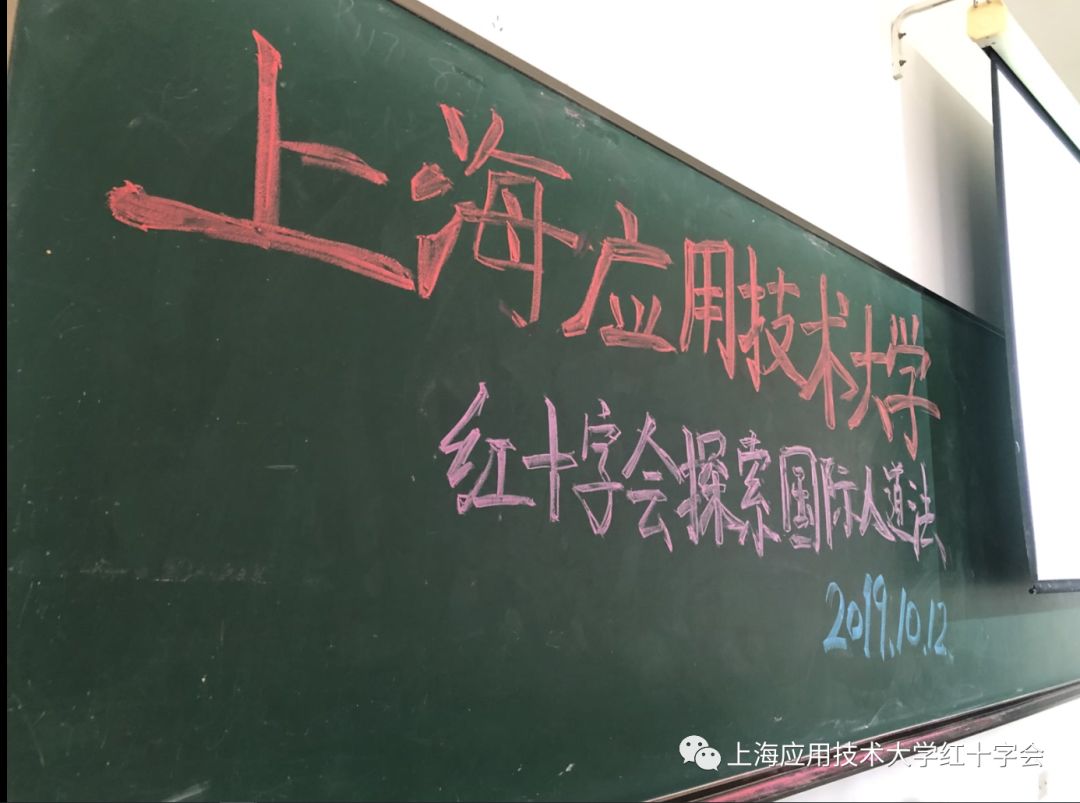 上海应用技术大学
红十字会探索国际人道法
2019.10.12
上海应用技术大学红十字会